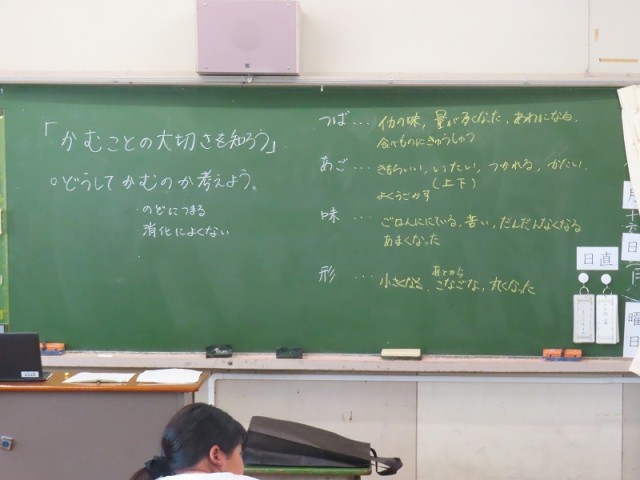 「かむことの大切さを知ろう」
○どうしてかむのか考えよう。
・のどにつまる
消化によくない
つば… 他の味, 量が多くなった, あわになる,
食べものにきゅうしゅう
あご… きもちいい, いたい, つかれる, かたい,
(上下)
よくうごかす
味 … ごはんににている, 苦い, だんだんなくなる
あまくなった
形 …
あとから
小さくなる, こなごな, 丸くなった
月
十六
日
(月)
曜
日
日直